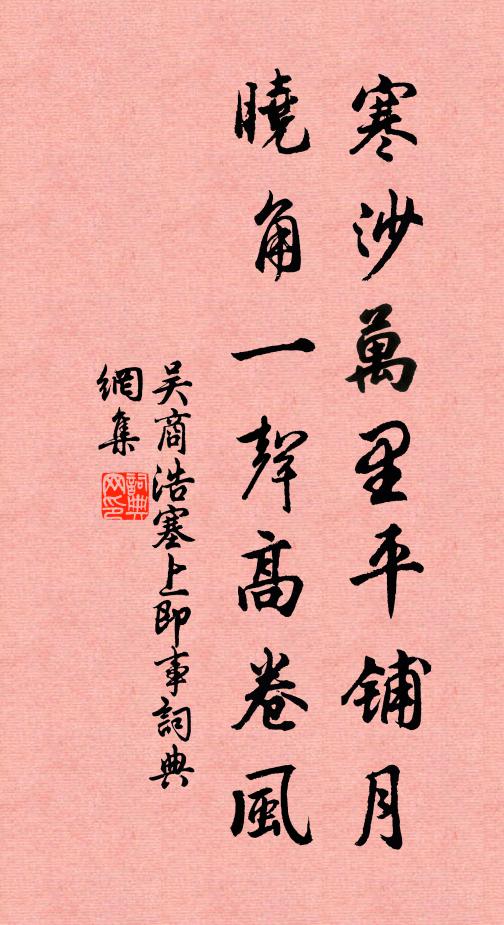 寒沙萬里平铺月
曉角一聲高卷風
吴商浩塞上即事詞典
網集
詞典
网印